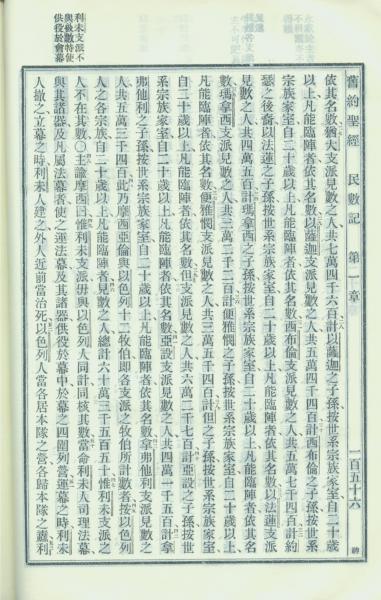 舊約聖經 民數記 第一章 一百五十六
利未支派不
與數特使
供役於會幕
依其名數猶大支派見數之人共七萬四千六百計以薩迦之子孫按世系宗族家室自二十歲
以上凡能臨陣者依其名數以薩迦支派見數之人共五萬四千四百計西布倫之子孫按世系
宗族家室自二十歲以上凡能臨陣者依其名數西布倫支派見數之人共五萬七千四百計約
瑟之後裔以法蓮之子孫按世系宗族家室自二十歲以上凡能臨陣者依其名數以法蓮支派
見數之人共四萬五百計瑪拿西之子孫按世系宗族家室自二十歲以上凡能臨陣者依其名
數瑪拿西支派見數之人共三萬二千二百計便雅憫之子孫按世系宗族家室自二十歲以上
凡能臨陣者依其名數便雅憫支派見數之人共三萬五千四百計但之子孫按世系宗族家室
自二十歲以上凡能臨陣者依其名數但支派見數之人共六萬二千七百計亞設之子孫按世
系宗族家室自二十歲以上凡能臨陣者依其名數亞設支派見數之人共四萬一千五百計拿
弗他利之子孫按世系宗族家室自二十歲以上凡能臨陣者依其名數拿弗他利支派見數之
人共五萬三千四百此乃摩西亞倫與以色列十二牧伯即各支派之牧伯所計數者按以色列
人之各宗族自二十歲以上凡能臨陣者見數之人總計六十萬三千五百五十惟利未支派之
人不在其數〇主諭摩西曰惟利未支派毋與以色列人同計同核其數當命利未人司理法幕
與其諸器及凡屬法幕者使之運法幕及其諸器供役於幕中於幕之四圍列營運幕之時利未
人撤之立幕之時利未人建之外人近前當治死以色列人當各居本隊之營各歸本隊之纛利